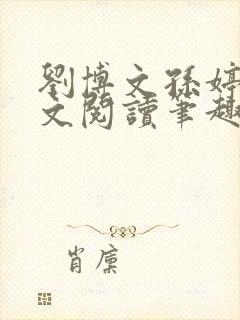 劉博文孫婷
文閱讀筆趣
肖廩